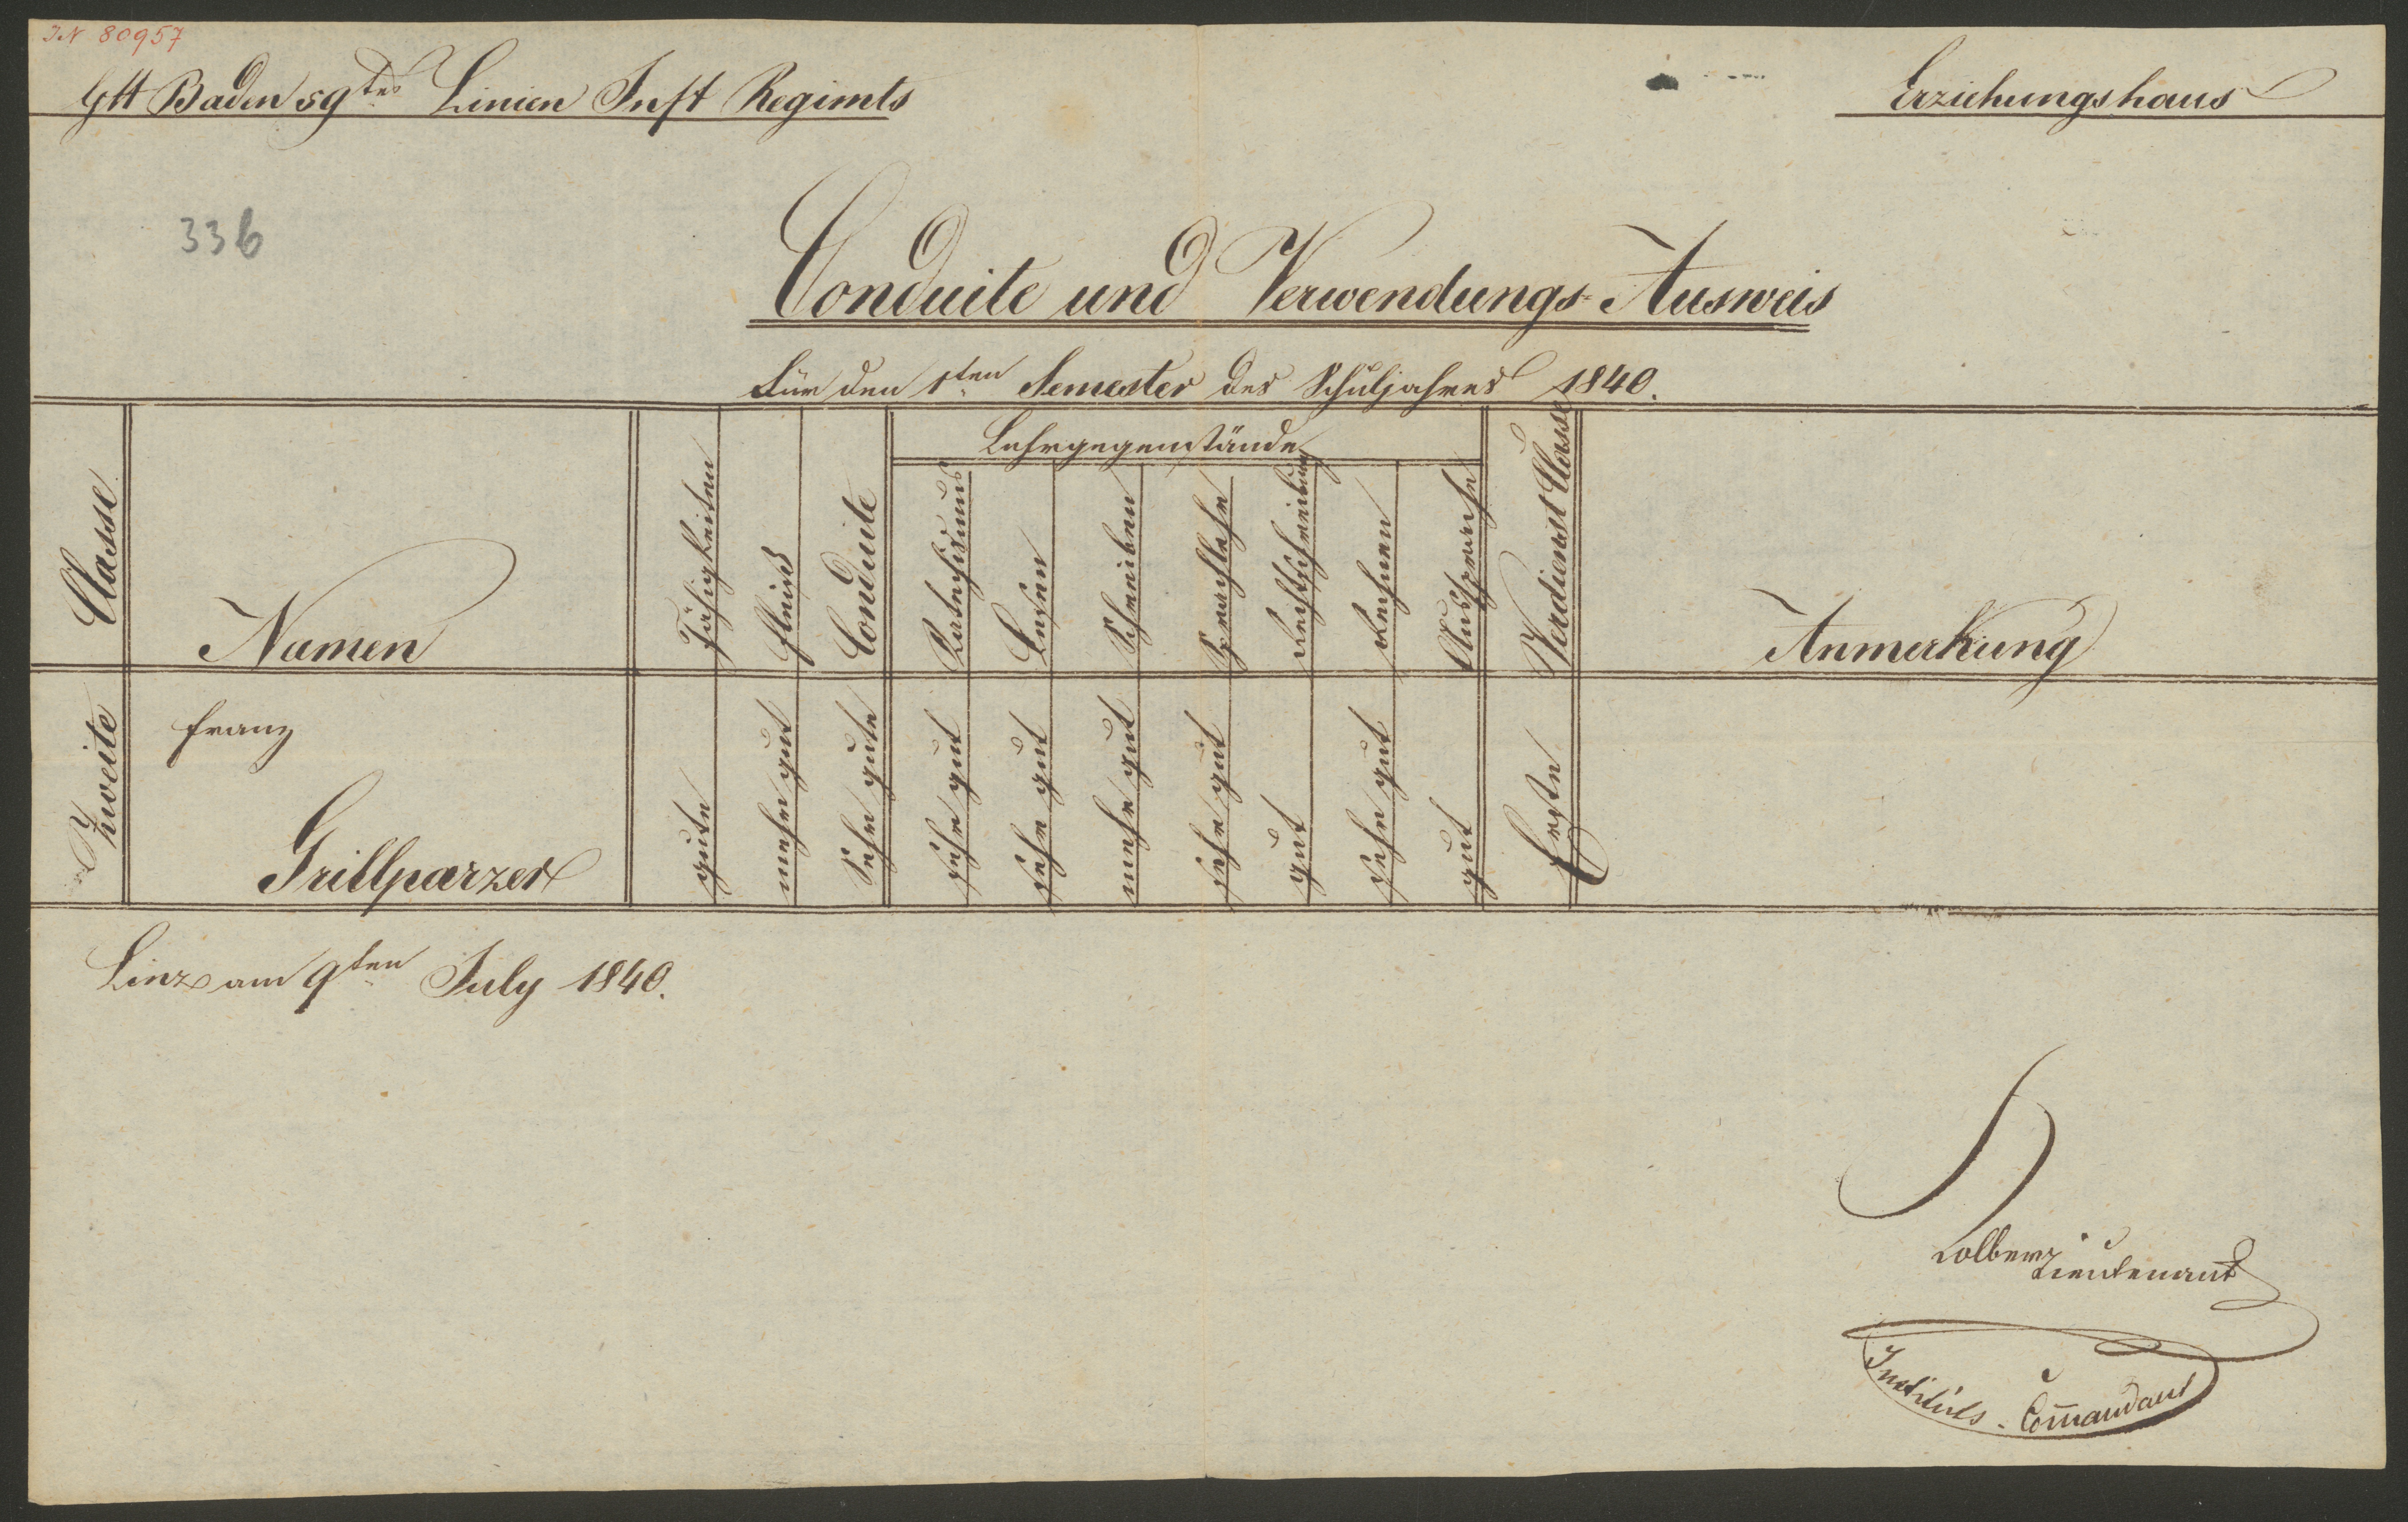 IN 80957
GH Baden 59tes Linien Inft Regimts
Erziehungshaus
336
Conduite und Verwendungs-Ausweis
Für den 1ten Semester des Schuljahres 1840.
Classe
Namen
Fähigkeiten
Fleiß
Conduite
Lehrgegenstände
Katechismus
Lesen
Schreiben
Sprachlehre
Rechtschreibung
Rechnen
Aussprache
Verdienst Classe
Anmerkung
Zweite
Franz
Grillparzer
gute
mehr gut
Sehr gute
sehr gut
sehr gut
mehr gut
sehr gut
gut
sehr gut
gut
Erste
Linz am 9ten July 1840.
Lieutenant
Instituts-Com̄andant